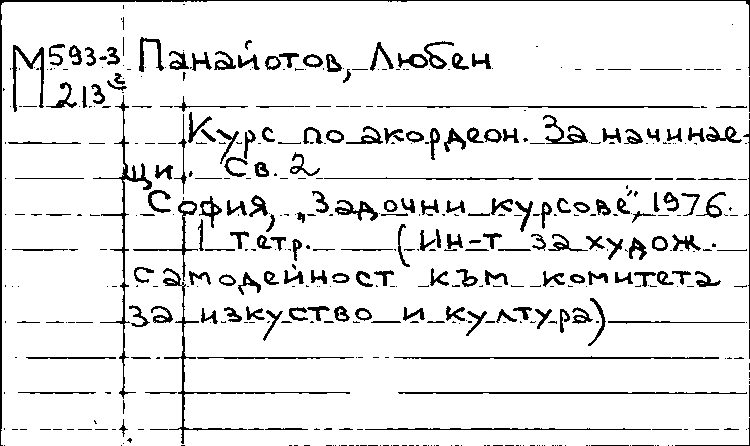 М 593-3 Панайотов, Любен
213²
Курс по акордеон. За начинае-
щи. Св. 2
София, „Задочни курсове", 1976.
1 тетр. (Ин-т за худож.
самодейност към комитета
за изкуство и култура)